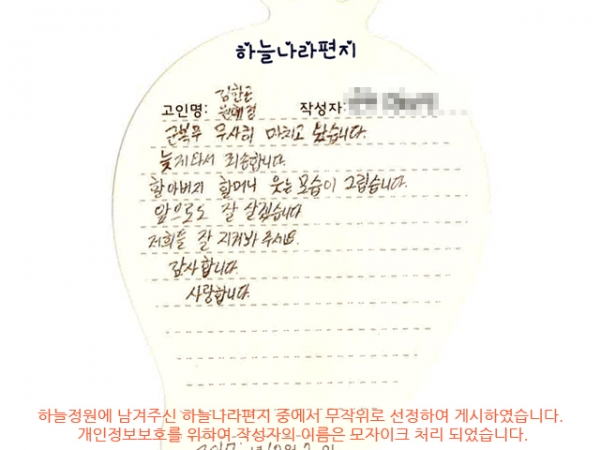 하늘나라편지
고인명:
작성자:
군복무 무사히 마치고 왔습니다.
늦지와서 죄송합니다.
할아버지 할머니 웃는 모습이 그립습니다.
앞으로도 잘 살겠습니다
저희들 잘 지켜봐 주시요.
감사합니다.
사랑합니다.
하늘정원에 남겨주신 하늘나라편지 중에서 무작위로 선정하여 게시하였습니다.
개인정보보호를 위하여 작성자의 이름은 모자이크 처리 되었습니다.